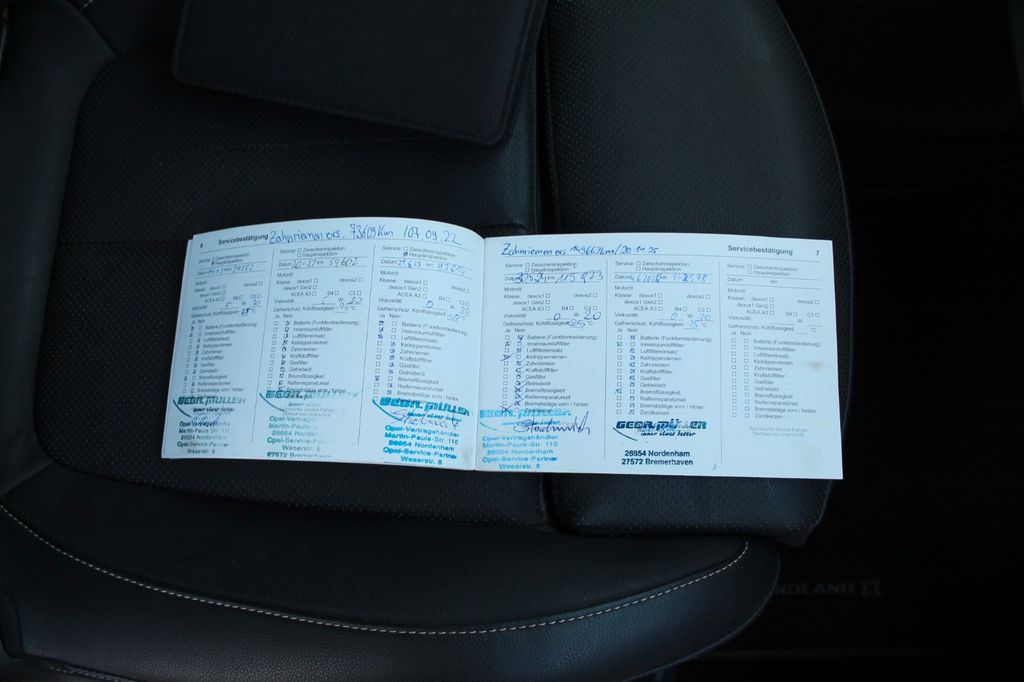 6 Servicebestätigung Zahnriemen ers. 73619 Km / 07.09.22
Service: Zwischeninspektion
Hauptinspektion
Motoröl
Klasse: dexos1 dexos2
dexos1 Gen2
ACEA A3 B4 C3
Viskosität: W-
Gefrierschutz, Kühlflüssigkeit -25 °C
Ja Nein
Batterie (Funkfernbedienung)
Innenraumluftfilter
Luftfiltereinsatz
Keilrippenriemen
Zahnriemen
Kraftstofffilter
Gasfilter
Getriebeöl
Bremsflüssigkeit
Reifenreparaturset
Bremsbeläge vorn / hinten
GEBR. MÜLLER
immer etwas besser
Opel-Vertragshändler
Martin-Pauls-Str. 110
26954 Nordenham
Opel-Service-Partner
Weserstr. 6
Service: Zwischeninspektion
Hauptinspektion
Datum km 59602
Motoröl
Klasse: dexos1 dexos2
dexos1 Gen2
ACEA A3 B4 C3
Viskosität: 0 W- 20
Gefrierschutz, Kühlflüssigkeit °C
Ja Nein
Batterie (Funkfernbedienung)
Innenraumluftfilter
Luftfiltereinsatz
Keilrippenriemen
Zahnriemen
Kraftstofffilter
Gasfilter
Getriebeöl
Bremsflüssigkeit
Reifenreparaturset
Bremsbeläge vorn / hinten
Opel-Vertragshändler
Opel-Service-Partner
27572 Bremerhaven
Service: Zwischeninspektion
Hauptinspektion
Datum km
Motoröl
Klasse: dexos1 dexos2
dexos1 Gen2
ACEA A3 B4 C3
Viskosität: 0 W- 20
Gefrierschutz, Kühlflüssigkeit °C
Ja Nein
Batterie (Funkfernbedienung)
Innenraumluftfilter
Luftfiltereinsatz
Keilrippenriemen
Zahnriemen
Kraftstofffilter
Gasfilter
Getriebeöl
Bremsflüssigkeit
Reifenreparaturset
Bremsbeläge vorn / hinten
GEBR. MÜLLER
Opel-Vertragshändler
Martin-Pauls-Str. 110
26954 Nordenham
Opel-Service-Partner
Weserstr. 6
Zahnriemen ers 149667 km / 20.11.25 Servicebestätigung 7
Service: Zwischeninspektion
Hauptinspektion
km 115 973
Motoröl
Klasse: dexos1 dexos2
dexos1 Gen2
ACEA A3 B4 C3
Viskosität: 0 W- 20
Gefrierschutz, Kühlflüssigkeit -25 °C
Ja Nein
Batterie (Funkfernbedienung)
Innenraumluftfilter
Luftfiltereinsatz
Keilrippenriemen
Zahnriemen
Kraftstofffilter
Gasfilter
Getriebeöl
Bremsflüssigkeit
Reifenreparaturset
Bremsbeläge vorn / hinten
Opel-Vertragshändler
Martin-Pauls-Str. 110
26954 Nordenham
Opel-Service-Partner
Weserstr. 6
Service: Zwischeninspektion
Hauptinspektion
Datum km
Motoröl
Klasse: dexos1 dexos2
dexos1 Gen2
ACEA A3 B4 C3
Viskosität: 0 W- 20
Gefrierschutz, Kühlflüssigkeit °C
Ja Nein
Batterie (Funkfernbedienung)
Innenraumluftfilter
Luftfiltereinsatz
Keilrippenriemen
Zahnriemen
Kraftstofffilter
Gasfilter
Getriebeöl
Bremsflüssigkeit
Reifenreparaturset
Bremsbeläge vorn / hinten
Zündkerzen
GEBR. MÜLLER
immer etwas besser
26954 Nordenham
27572 Bremerhaven
Service: Zwischeninspektion
Hauptinspektion
Datum km
Motoröl
Klasse: dexos1 dexos2
dexos1 Gen2
ACEA A3 B4 C3
Viskosität: W-
Gefrierschutz, Kühlflüssigkeit °C
Ja Nein
Batterie (Funkfernbedienung)
Innenraumluftfilter
Luftfiltereinsatz
Keilrippenriemen
Zahnriemen
Kraftstofffilter
Gasfilter
Getriebeöl
Bremsflüssigkeit
Reifenreparaturset
Bremsbeläge vorn / hinten
Zündkerzen
Autorisierter Service Partner
Stempel und Unterschrift
NDLAND X